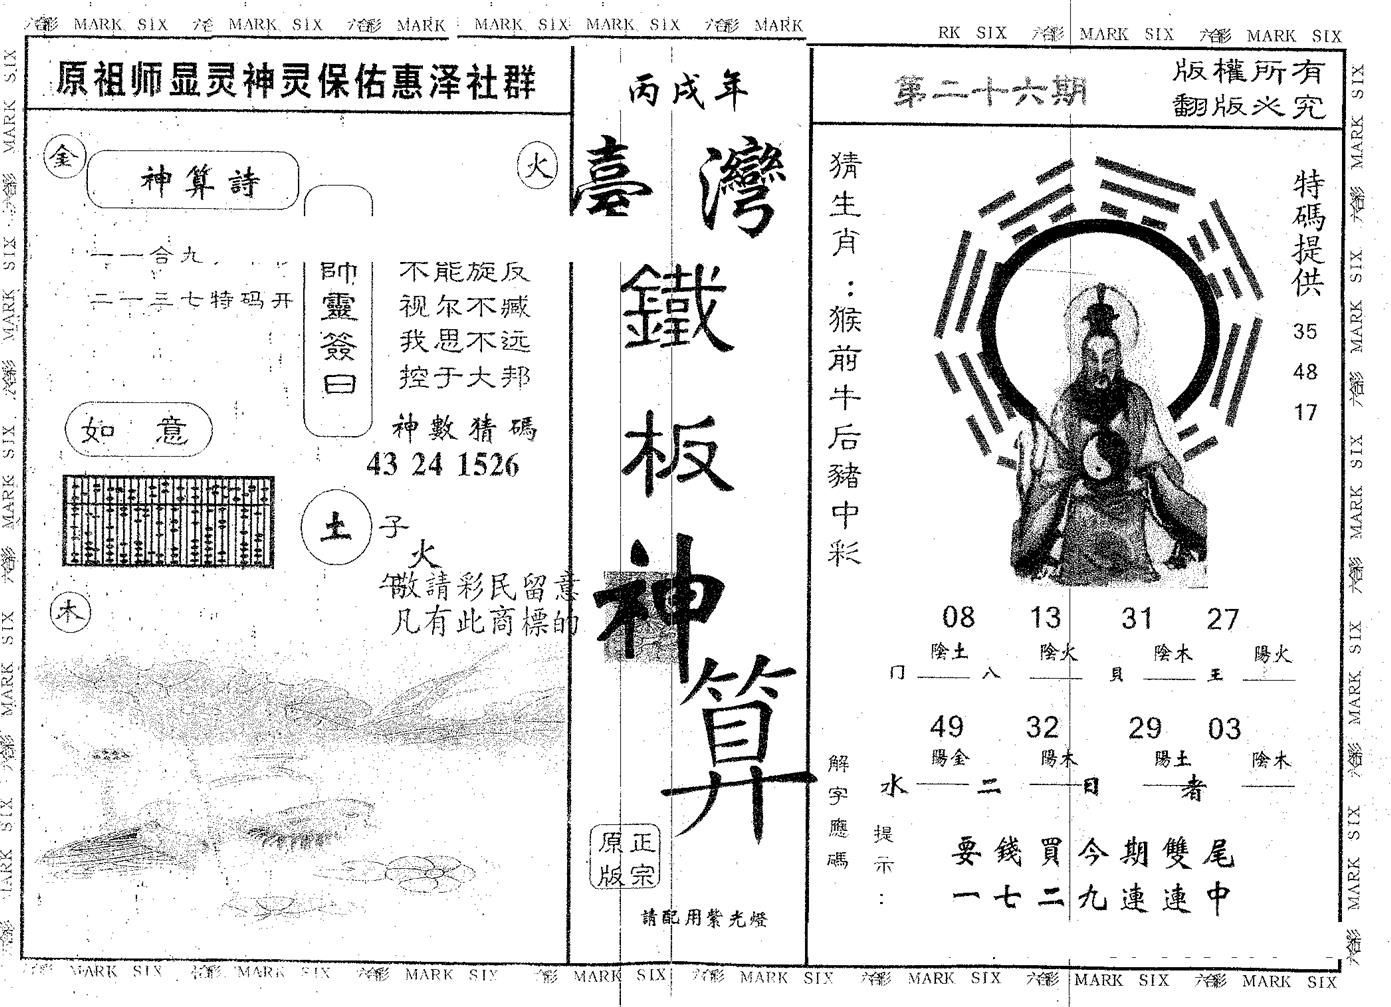 六合彩 MARK SIX 六合彩 MARK SIX 六合彩 MARK SIX MARK SIX 六合彩 MARK
RK SIX 六合彩 MARK SIX 六合彩 MARK SIX
原祖师显灵神灵保佑惠泽社群
金
神算詩
火
一一合九
二一三七特码开
帥靈簽曰
不能旋反
视尔不臧
我思不远
控于大邦
如 意
神數猜碼
43 24 1526
土
子
火
木
敬請彩民留意
凡有此商標的
丙戌年
臺灣
鐵
板
神
算
正宗
原版
請配用紫光燈
第二十六期
版權所有
翻版必究
猜生肖：猴前牛后豬中彩
特碼提供
35
48
17
08 13 31 27
陰土 陰火 陰木 陽火
门 八 貝 王
49 32 29 03
陽金 陽木 陽土 陰木
水 二 日 者
解字應碼
提示：
要錢買今期雙尾
一七二九連連中
六合彩 MARK SIX 六合彩 MARK SIX 六合彩 MARK SIX 六合彩 MARK SIX 六合彩 MARK SIX 六合彩 MARK SIX 六合彩 MARK SIX